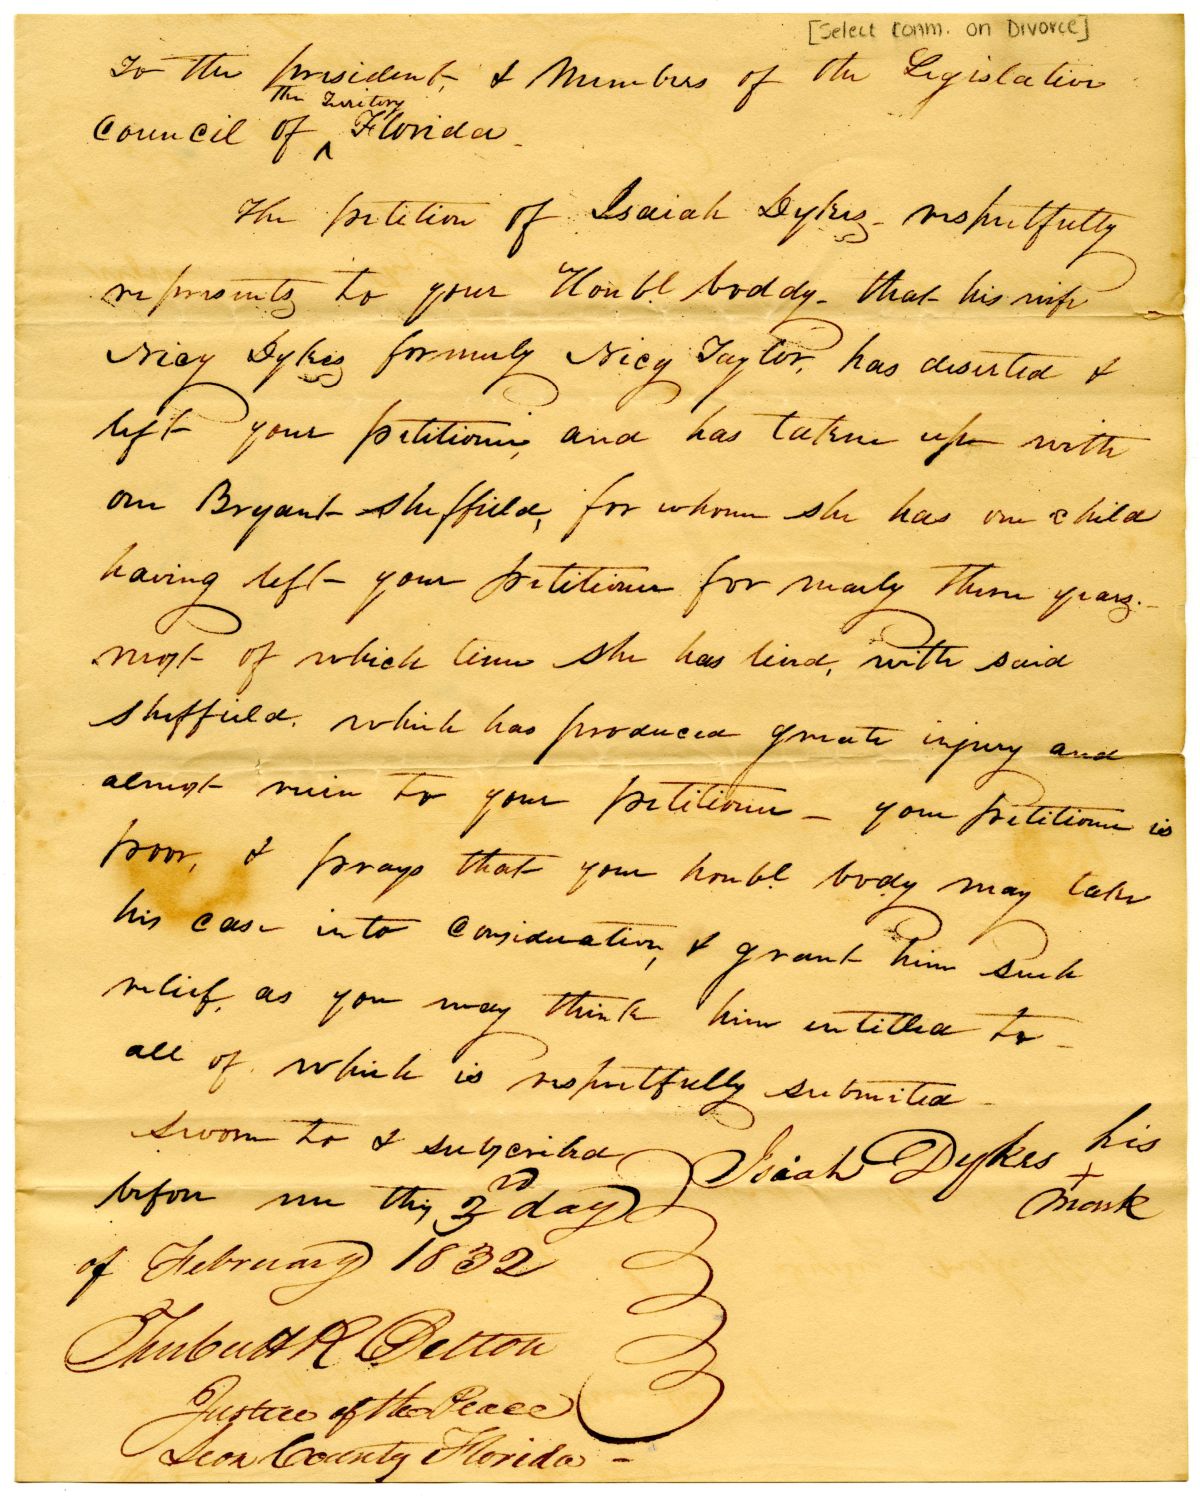 [Select Comm. on Divorce]
To the president, & Members of the Legislative
the Territory
Council of ^ Florida
The petition of Isaiah Dykes respectfully
represents to your Honbl. boddy that his wife
Nicy Dykes formerly Nicy Taylor, has deserted &
left your petitioner, and has taken up with
one Bryant Sheffield, for whom she has one child
having left your petitioner for nearly three years.
most of which time she has lived, with said
Sheffield. which has produced greate injury and
almost ruin to your petitioner – your petitioner is
poor, & prays that your honbl. body may take
his case into consideration, & grant him such
relief, as you may think him intitled to
all of which is respectfully submited
Sworn to & subscribed
before me this 3rd day
of February 1832
Isaiah Dykes his
+
mark
R Betton
Justice of the Peace
Leon County Florida –